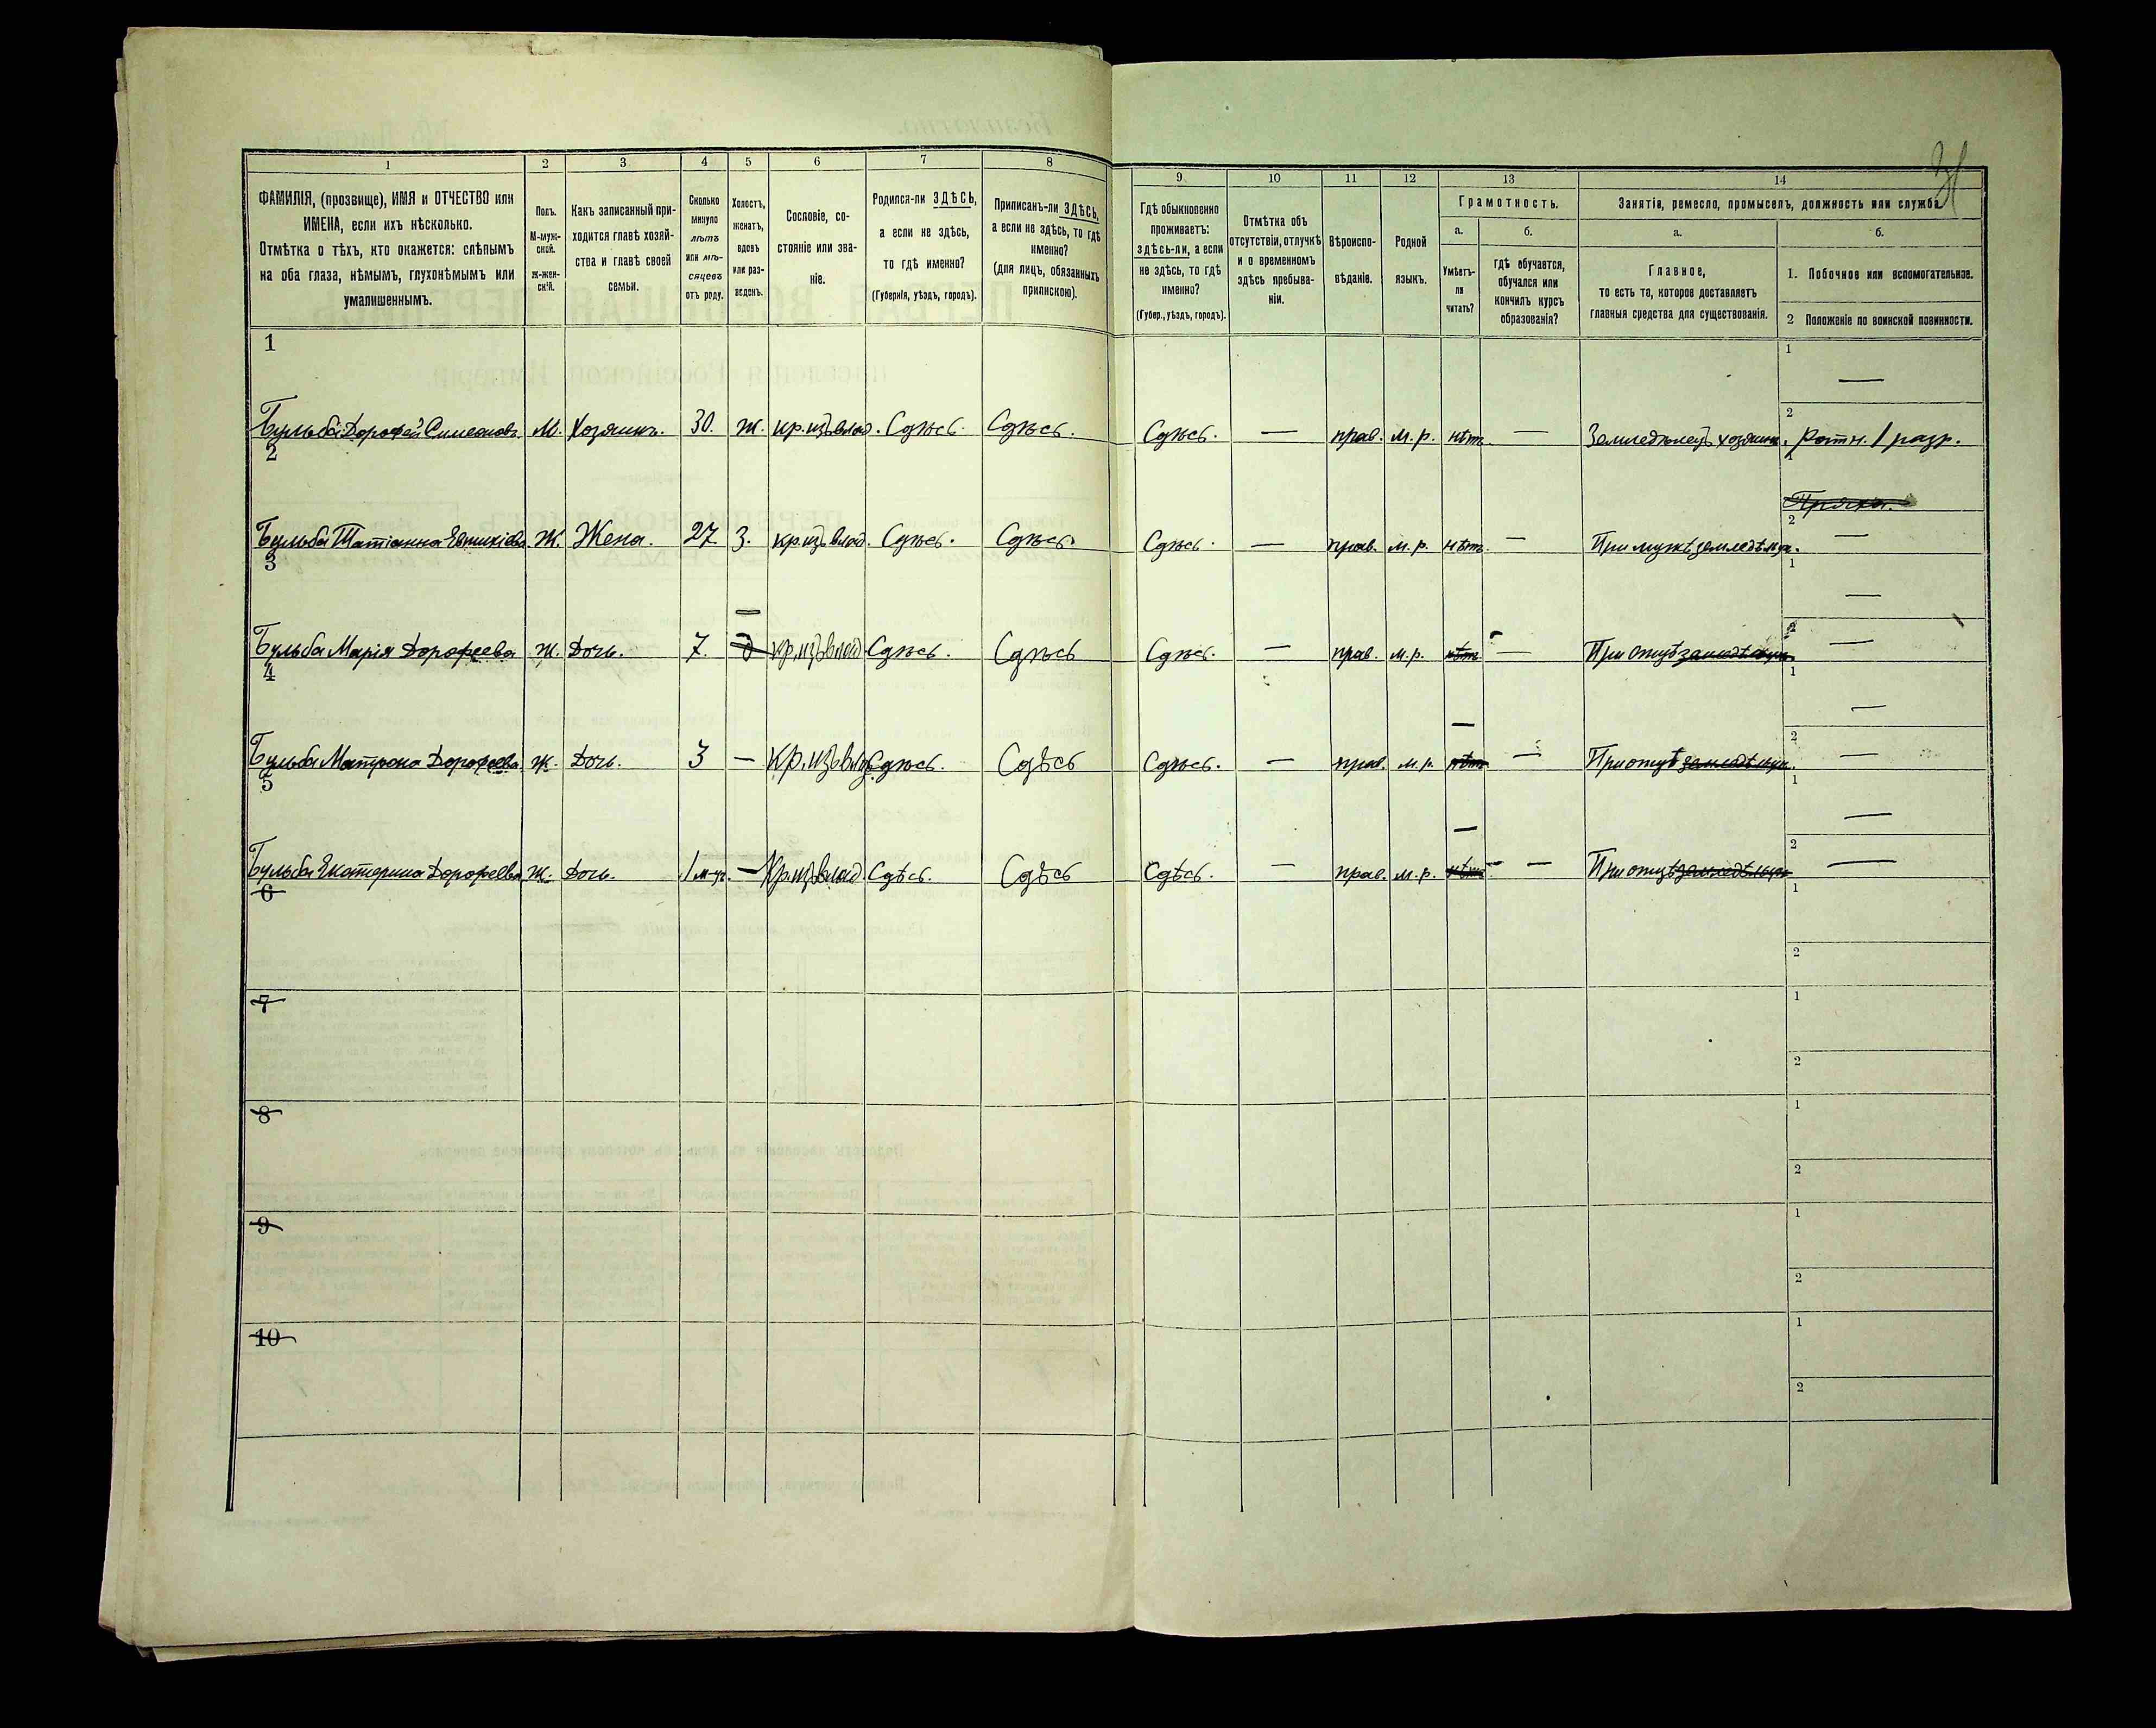 31
1 2 3 4 5 6 7 8 9 10 11 12 13 14
ФАМИЛІЯ, (прозвище), ИМЯ и ОТЧЕСТВО или
ИМЕНА, если ихъ нѣсколько.
Отмѣтка о тѣхъ, кто окажется: слѣпымъ
на оба глаза, нѣмымъ, глухонѣмымъ или
умалишеннымъ.
Полъ.
М-муж-
ской.
ж-жен-
скій.
Какъ записанный при-
ходится главѣ хозяй-
ства и главѣ своей
семьи.
Сколько
минуло
лѣтъ
или мѣ-
сяцевъ
отъ роду.
Холостъ,
женатъ,
вдовъ
или раз-
веденъ.
Сословіе, со-
стояніе или зва-
ніе.
Родился-ли ЗДѢСЬ,
а если не здѣсь,
то гдѣ именно?
(Губернія, уѣздъ, городъ).
Приписанъ-ли ЗДѢСЬ,
а если не здѣсь, то гдѣ
именно?
(для лицъ, обязанныхъ
припискою).
Гдѣ обыкновенно
проживаетъ:
здѣсь-ли, а если
не здѣсь, то гдѣ
именно?
(Губер., уѣздъ, городъ).
Отмѣтка объ
отсутствіи, отлучкѣ
и о временномъ
здѣсь пребыва-
ніи.
Вѣроиспо-
вѣданіе.
Родной
языкъ.
Грамотность.
а.
Умѣетъ-
ли
читать?
б.
гдѣ обучается,
обучался или
кончилъ курсъ
образованія?
Занятія, ремесло, промыселъ, должность или служба.
а.
Главное,
то есть то, которое доставляетъ
главныя средства для существованія.
б.
1. Побочное или вспомогательное.
2 Положеніе по воинской повинности.
1
1 —
2
Бульба Дорофей Симеоновъ. М. Хозяинъ. 30. ж. кр. изъ влад. Сдѣсь. Сдѣсь. Сдѣсь. — прав. м. р. нѣтъ — Земледѣлецъ хозяинъ. Ратн. 1 разр.
2
1 Пряха.
2
Бульба Татіанна Ж. Жена. 27. З. кр. изъ влад. Сдѣсь. Сдѣсь. Сдѣсь. — прав. м. р. нѣтъ. — При мужѣ земледѣльцѣ. —
3
1 —
2
Бульба Марія Дорофеева Ж. Дочь. 7. — кр. изъ влад Сдѣсь. Сдѣсь Сдѣсь. — прав. м. р. нѣтъ — При отцѣ земледѣльцѣ —
4
1 —
2
Бульба Матрона Дорофеева. Ж. Дочь. 3 — Кр. изъ влад. Сдѣсь. Сдѣсь Сдѣсь. — прав. м. р. нѣтъ — При отцѣ земледѣльцѣ. —
5
1 —
2
Бульба Екатерина Дорофеева Ж. Дочь. 1 м-цъ. — Кр. изъ влад Сдѣсь. Сдѣсь Сдѣсь. — прав. м. р. нѣтъ — При отцѣ земледѣльцѣ —
6
1
2
7
1
2
8
1
2
9
1
2
10
1
2